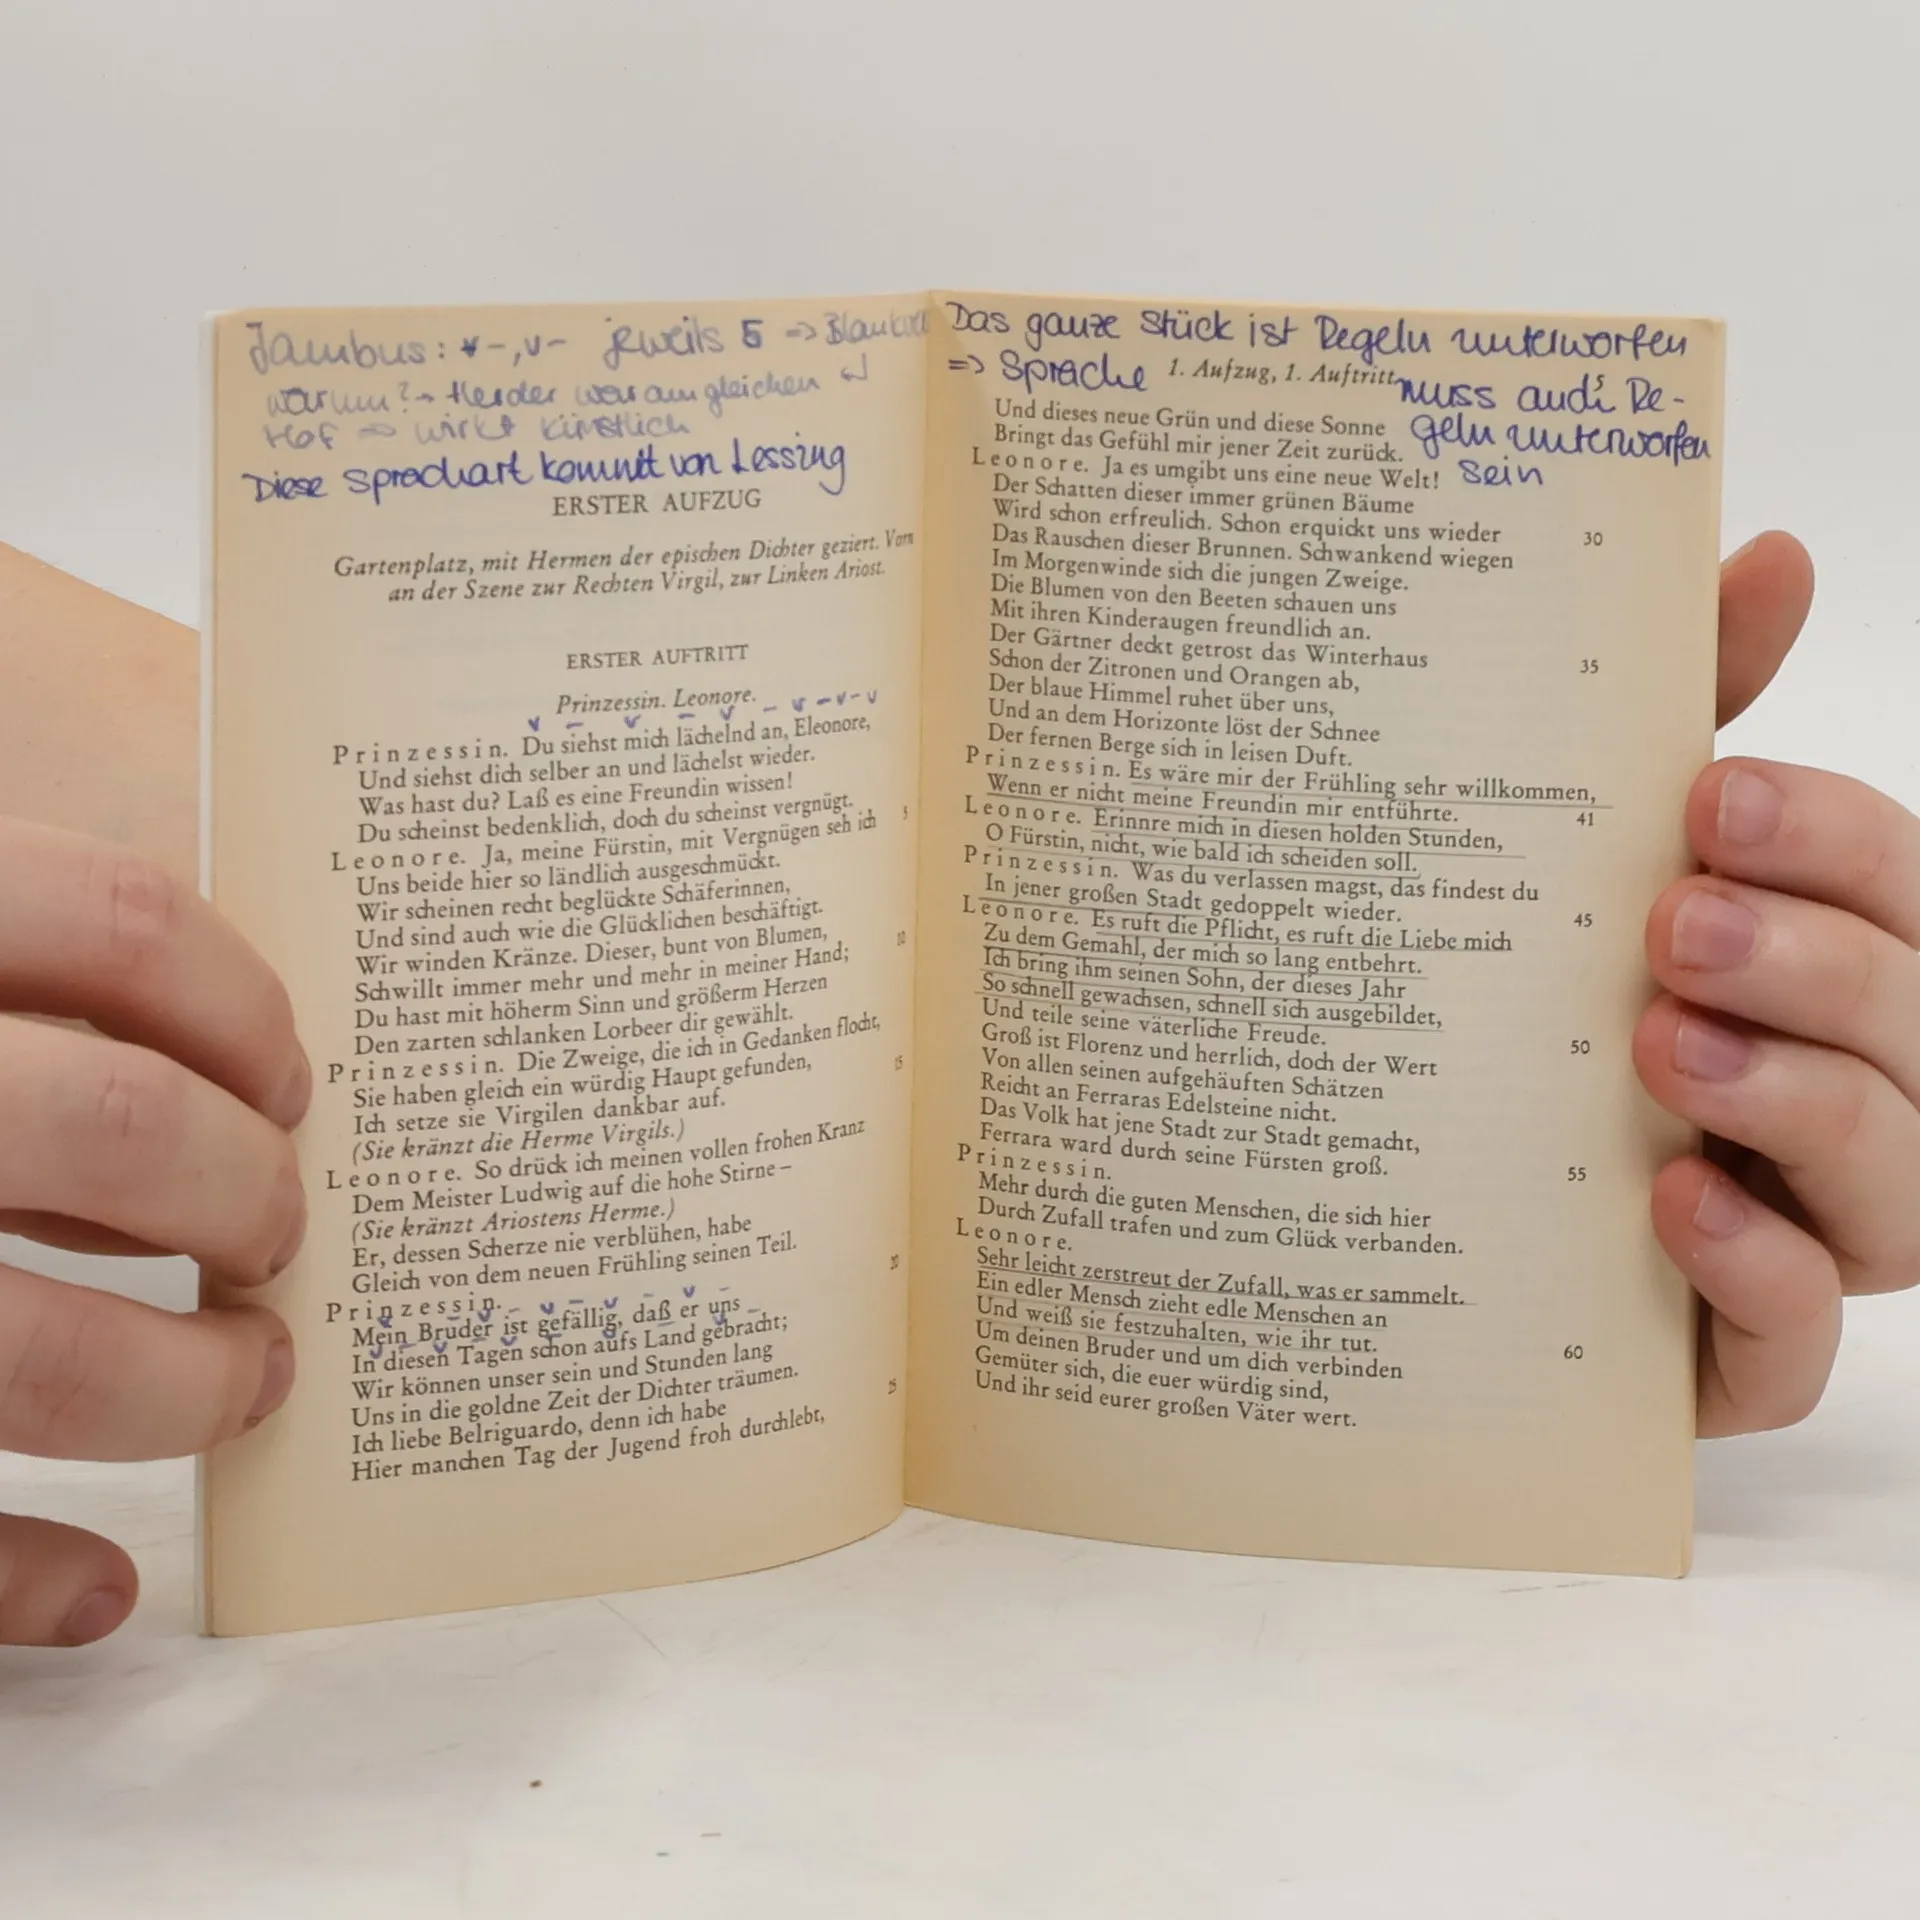 Jambus: v-, v- jeweils 5 => Blankvers
warum? → Herder war am gleichen
Hof => wirkt künstlich
Diese Sprachart kommt von Lessing
ERSTER AUFZUG
Gartenplatz, mit Hermen der epischen Dichter geziert. Vorn
an der Szene zur Rechten Virgil, zur Linken Ariost.
ERSTER AUFTRITT
Prinzessin. Leonore.
v - v - v - v - v - v
Prinzessin. Du siehst mich lächelnd an, Eleonore,
Und siehst dich selber an und lächelst wieder.
Was hast du? Laß es eine Freundin wissen!
Du scheinst bedenklich, doch du scheinst vergnügt.
Leonore. Ja, meine Fürstin, mit Vergnügen seh ich 5
Uns beide hier so ländlich ausgeschmückt.
Wir scheinen recht beglückte Schäferinnen,
Und sind auch wie die Glücklichen beschäftigt.
Wir winden Kränze. Dieser, bunt von Blumen,
Schwillt immer mehr und mehr in meiner Hand; 10
Du hast mit höherm Sinn und größerm Herzen
Den zarten schlanken Lorbeer dir gewählt.
Prinzessin. Die Zweige, die ich in Gedanken flocht,
Sie haben gleich ein würdig Haupt gefunden,
Ich setze sie Virgilen dankbar auf. 15
(Sie kränzt die Herme Virgils.)
Leonore. So drück ich meinen vollen frohen Kranz
Dem Meister Ludwig auf die hohe Stirne –
(Sie kränzt Ariostens Herme.)
Er, dessen Scherze nie verblühen, habe
Gleich von dem neuen Frühling seinen Teil.
Prinzessin.
Mein Bruder ist gefällig, daß er uns 20
In diesen Tagen schon aufs Land gebracht;
Wir können unser sein und Stunden lang
Uns in die goldne Zeit der Dichter träumen.
Ich liebe Belriguardo, denn ich habe
Hier manchen Tag der Jugend froh durchlebt, 25
Das ganze Stück ist Regeln unterworfen
=> Sprache muss auch Re-
geln unterworfen
sein
1. Aufzug, 1. Auftritt 5
Und dieses neue Grün und diese Sonne
Bringt das Gefühl mir jener Zeit zurück.
Leonore. Ja es umgibt uns eine neue Welt!
Der Schatten dieser immer grünen Bäume
Wird schon erfreulich. Schon erquickt uns wieder 30
Das Rauschen dieser Brunnen. Schwankend wiegen
Im Morgenwinde sich die jungen Zweige.
Die Blumen von den Beeten schauen uns
Mit ihren Kinderaugen freundlich an.
Der Gärtner deckt getrost das Winterhaus 35
Schon der Zitronen und Orangen ab,
Der blaue Himmel ruhet über uns,
Und an dem Horizonte löst der Schnee
Der fernen Berge sich in leisen Duft.
Prinzessin. Es wäre mir der Frühling sehr willkommen,
Wenn er nicht meine Freundin mir entführte. 41
Leonore. Erinnre mich in diesen holden Stunden,
O Fürstin, nicht, wie bald ich scheiden soll.
Prinzessin. Was du verlassen magst, das findest du
In jener großen Stadt gedoppelt wieder. 45
Leonore. Es ruft die Pflicht, es ruft die Liebe mich
Zu dem Gemahl, der mich so lang entbehrt.
Ich bring ihm seinen Sohn, der dieses Jahr
So schnell gewachsen, schnell sich ausgebildet,
Und teile seine väterliche Freude. 50
Groß ist Florenz und herrlich, doch der Wert
Von allen seinen aufgehäuften Schätzen
Reicht an Ferraras Edelsteine nicht.
Das Volk hat jene Stadt zur Stadt gemacht,
Ferrara ward durch seine Fürsten groß. 55
Prinzessin.
Mehr durch die guten Menschen, die sich hier
Durch Zufall trafen und zum Glück verbanden.
Leonore.
Sehr leicht zerstreut der Zufall, was er sammelt.
Ein edler Mensch zieht edle Menschen an
Und weiß sie festzuhalten, wie ihr tut. 60
Um deinen Bruder und um dich verbinden
Gemüter sich, die euer würdig sind,
Und ihr seid eurer großen Väter wert.